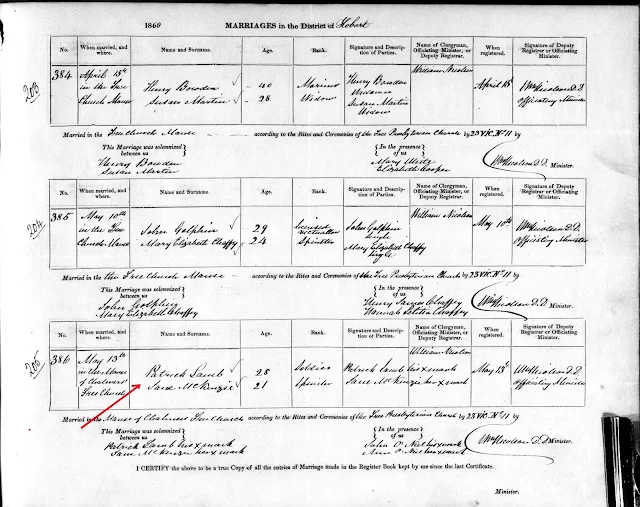 1869 MARRIAGES in the District of Hobart
No. When married, and where. Name and Surname. Age. Rank. Signature and Description of Parties. Name of Clergyman, Officiating Minister, or Deputy Registrar. When registered. Signature of Deputy Registrar or Officiating Minister.
203
384 April 15th in the Free Church Manse
Henry Bowden 40 Mariner Henry Bowden Widower
Susan Martin 28 Widow Susan Martin Widow
William Nicolson April 15 Wm Nicolson D.D. Officiating Minister
Married in the Free Church Manse according to the Rites and Ceremonies of the Free Presbyterian Church by 23 VIC. No 11 by
This Marriage was solemnized between us
Henry Bowden
Susan Martin
In the presence of us
Mary
Elizabeth Cooper
Wm Nicolson D.D. Minister.
204
385 May 10th in the Free Church Manse
John Golphin 29 Licensed John Golphin Single
Mary Elizabeth Chaffey 24 Spinster Mary Elizabeth Chaffey Single
William Nicolson May 10th Wm Nicolson D.D. Officiating Minister
Married in the Free Church Manse according to the Rites and Ceremonies of the Free Presbyterian Church by 23 VIC. No 11 by
This Marriage was solemnized between us
John Golphin
Mary Elizabeth Chaffey
In the presence of us
Henry James Chaffey
Hannah Letitia Chaffey
Wm Nicolson D.D. Minister.
205
386 May 13th in the Manse of Chalmers Free Church
Patrick Lamb 28 Soldier Patrick Lamb his x mark
Jane McKenzie 21 Spinster Jane McKenzie her x mark
William Nicolson May 13th Wm Nicolson D.D. Officiating Minister
Married in the Manse of Chalmers Free Church according to the Rites and Ceremonies of the Free Presbyterian Church by 23 VIC. No 11 by
This Marriage was solemnized between us
Patrick Lamb his x mark
Jane McKenzie her x mark
In the presence of us
John O'Neil his x mark
Ann O'Neil her x mark
Wm Nicolson D.D. Minister.
I CERTIFY the above to be a true Copy of all the entries of Marriage made in the Register Book kept by me since the last Certificate.
Minister.